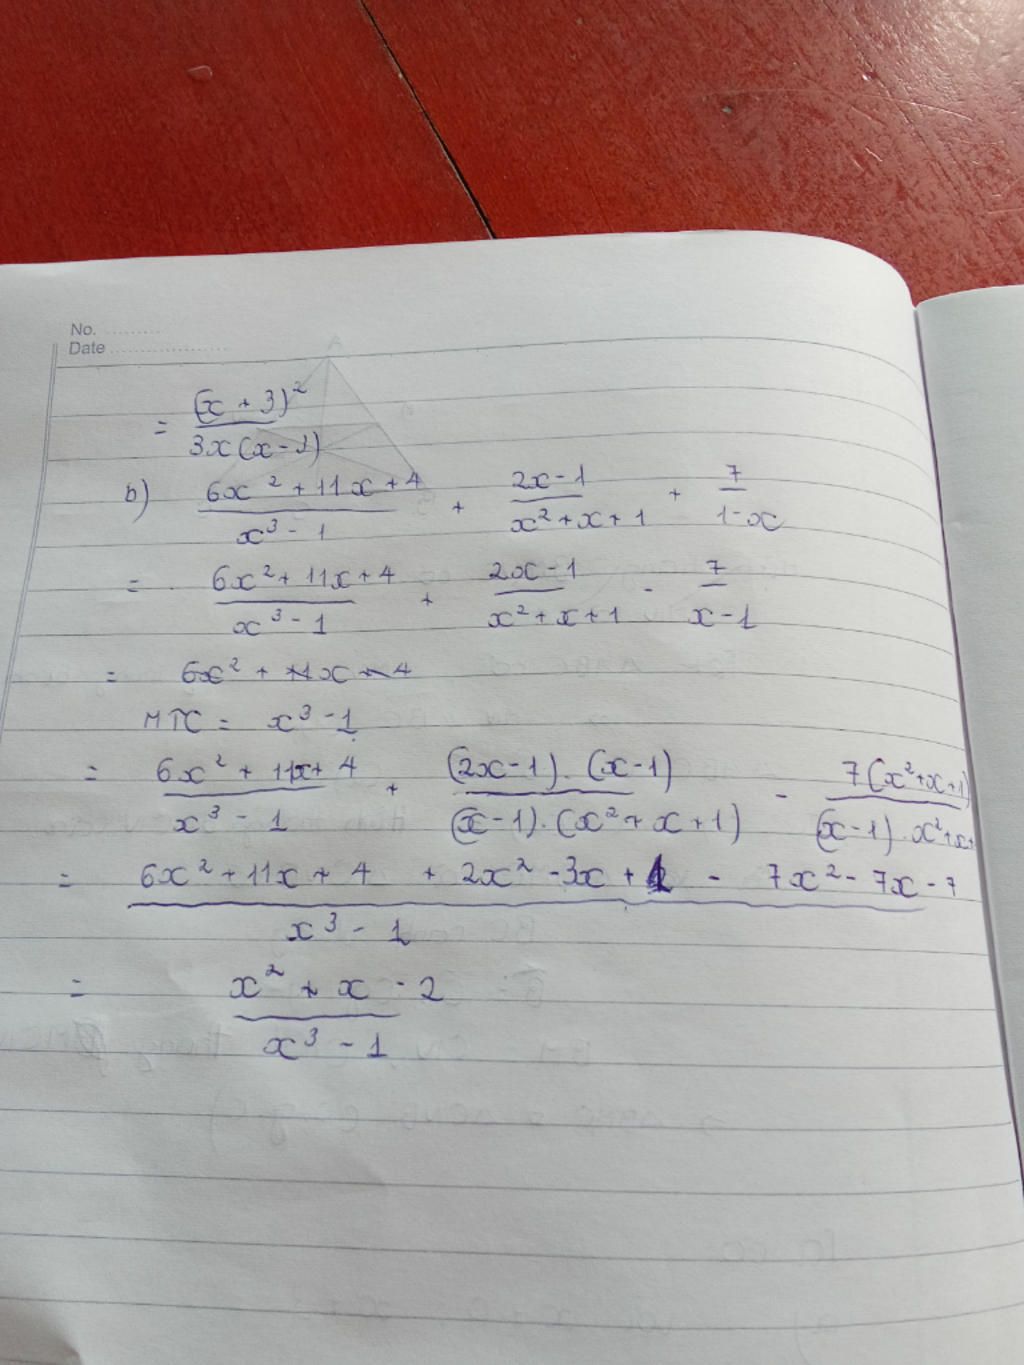 No. ..........
Date ....................
= (x + 3)² / 3x(x - 2)
b) 6x² + 11x + 4 / x³ - 1 + 2x - 1 / x² + x + 1 + 7 / 1 - x
= 6x² + 11x + 4 / x³ - 1 + 2x - 1 / x² + x + 1 - 7 / x - 1
= 6x² + 11x 4
MTC = x³ - 1
= 6x² + 11x + 4 / x³ - 1 + (2x - 1) . (x - 1) / (x - 1) . (x² + x + 1) - 7(x² + x + 1) / (x - 1) . x² + x +
= 6x² + 11x + 4 + 2x² - 3x + 1 - 7x² - 7x - 7 / x³ - 1
= x² + x - 2 / x³ - 1